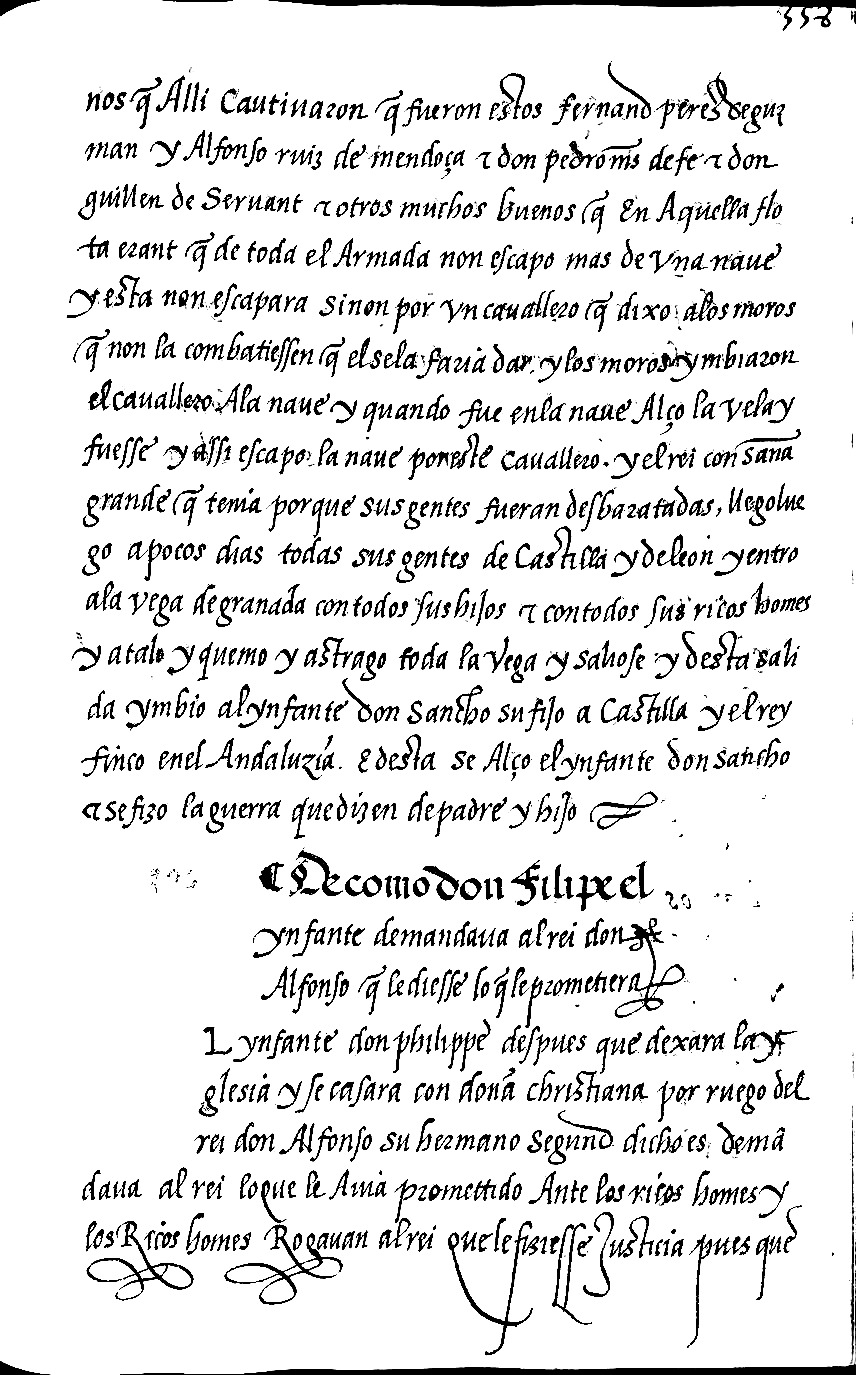 358
nos q̃ Alli Cautiuaron q̃ fueron estos fernand perez de guz
man y Alfonso ruiz de mendoça ⁊ don pedro mñs de fe ⁊ don
guillen de Seruant ⁊ otros muchos buenos q̃ En Aquella flo
ta erant q̃ de toda el Armada non escapo mas de vna naue
y esta non escapara sinon por vn cauallero q̃ dixo a los moros
q̃ non la combatiessen q̃ el se la faria dar y los moros ymbiaron
el cauallero A la naue y quando fue en la naue Alço la vela y
fuesse y assi escapo la naue por este cauallero. y el rei con sana
grande q̃ tenia porque sus gentes fueran desbaratadas, llego lue
go a pocos dias todas sus gentes de Castilla y de leon y entro
a la vega de granada con todos sus hijos ⁊ con todos sus ricos homes
y atalo y quemo y astrago toda la vega y saliose y desta sali
da ymbio al ynfante don Sancho su fijo a Castilla y el rey
finco en el Andaluzia. E desta se Alço el ynfante don sancho
⁊ se fizo la guerra que dizen de padre y hijo
¶ De como don Filipe el
ynfante demandaua al rei don
Alfonso q̃ le diesse lo q̃ le prometiera
L ynfante don philippe despues que dexara la y
glesia y se casara con dona christiana por ruego del
rei don Alfonso su hermano segund dicho es demã
daua al rei lo que le Auia promettido Ante los ricos homes y
los Ricos homes Rogauan al rei que le fiziesse Justicia pues que